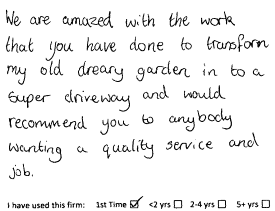 We are amazed with the work
that you have done to transform
my old dreary garden in to a
super driveway and would
recommend you to anybody
wanting a quality service and
job.
I have used this firm: 1st Time ☑ <2 yrs ☐ 2-4 yrs ☐ 5+ yrs ☐